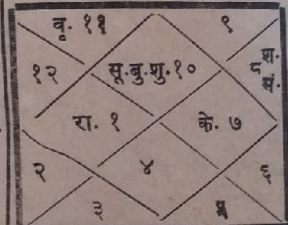 वृ. ११ ९
१२ सू.बु.शु.१० ८ श.
मं.
रा. १ के. ७
२ ४ ६
३ ५